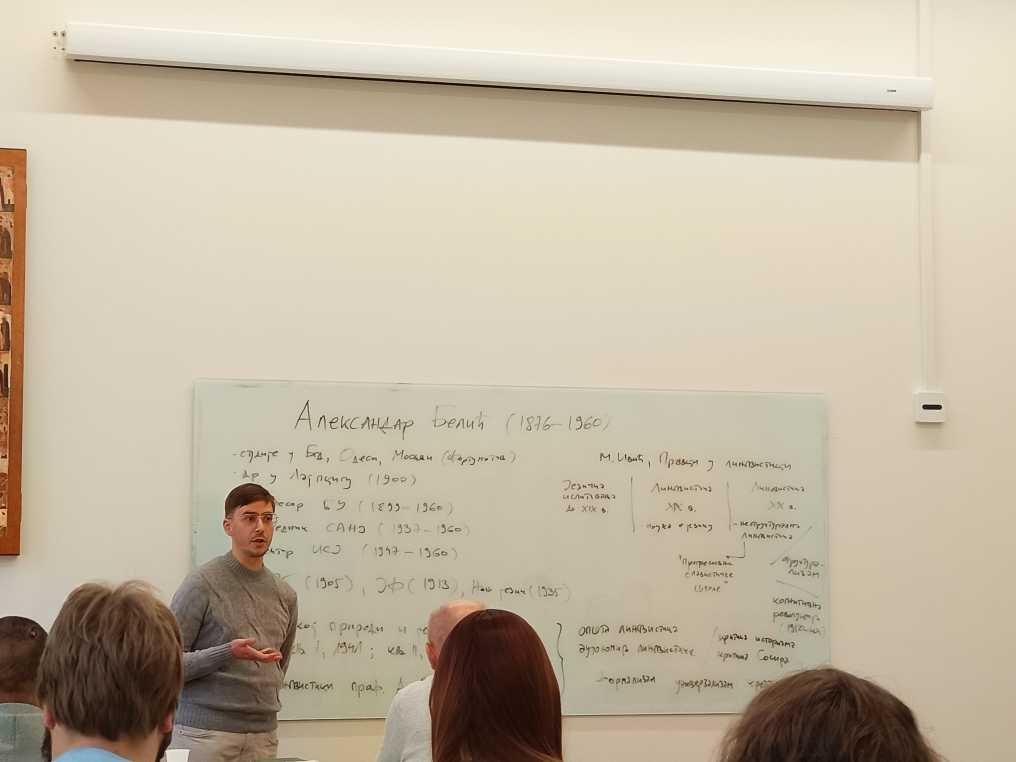 Александар Белић (1876–1960)
- студије у Бгд, Одеси, Москви (Фортунатов)
- др у Лајпцигу (1900)
БУ (1899–1960)
САНУ (1937–1960)
ИСЈ (1947–1960)
(1905), ЈФ (1913), Наш језик (1935)
природи и
I, 1941; књ. II,
проф.
М. Ивић, Правци у лингвистици
Језичка
испитивања
до XIX в.
Лингвистика
XIX в.
- наука о језику
Лингвистика
XX в.
- неструктурална
лингвистика
"прогресивне
славистичке
школе"
структура-
лизам
когнитивна
револуција
општа лингвистика
аутономија лингвистике
критика историзма
критика Сосира
формализам универзализам